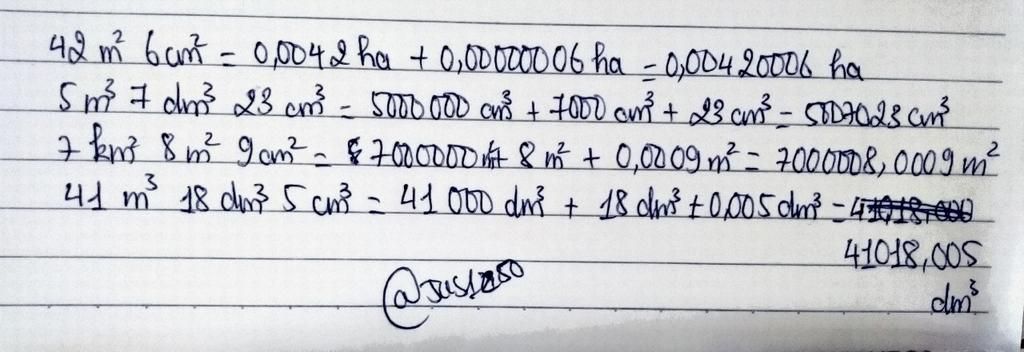 42 m² 6 cm² = 0,0042 ha + 0,00000006 ha = 0,00420006 ha
5 m³ 7 dm³ 23 cm³ = 5000 000 cm³ + 7000 cm³ + 23 cm³ = 5007023 cm³
7 km² 8 m² 9 cm² = 7000000 m² + 8 m² + 0,0009 m² = 7000008,0009 m²
41 m³ 18 dm³ 5 cm³ = 41 000 dm³ + 18 dm³ + 0,005 dm³ =
41018,005
dm³